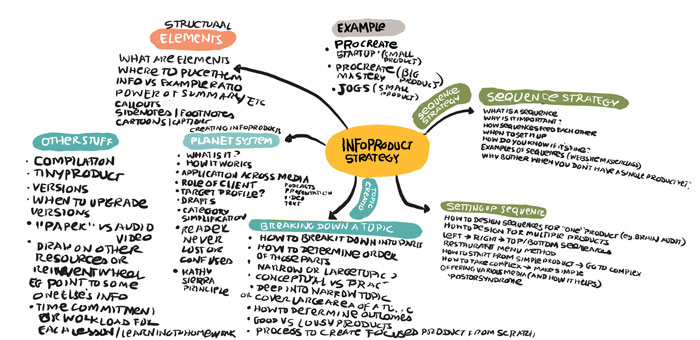 STRUCTURAL
ELEMENTS
WHAT ARE ELEMENTS
WHERE TO PLACE THEM
INFO VS EXAMPLE RATIO
POWER OF SUMMARY/ETC
CALLOUTS
SIDENOTES/FOOTNOTES
CARTOONS/CAPTIONS
EXAMPLE
• PROCREATE
STARTUP (SMALL
PRODUCT)
• PROCREATE (BIG
MASTERY PRODUCT)
• JOGS (SMALL
PRODUCT)
INFOPRODUCT
STRATEGY
SEQUENCE
STRATEGY
SEQUENCE STRATEGY
WHAT IS A SEQUENCE
WHY IS IT IMPORTANT?
HOW SEQUENCES FEED EACH OTHER
WHEN TO SET IT UP
HOW DO YOU KNOW IF IT'S DONE?
EXAMPLES OF SEQUENCES (WEBSITE MASTERCLASS)
WHY BOTHER WHEN YOU DON'T HAVE A SINGLE PRODUCT YET?
SETTING UP SEQUENCE
HOW TO DESIGN SEQUENCES FOR 'ONE' PRODUCT (EG. BRAIN AUDIT)
HOW TO DESIGN FOR MULTIPLE PRODUCTS
LEFT → RIGHT → TOP/BOTTOM SEQUENCES
RESTAURANT MENU METHOD
HOW TO START FROM SIMPLE PRODUCT → GO TO COMPLEX
HOW TO TAKE COMPLEX → MAKE SIMPLE
OFFERING VARIOUS MEDIA (AND HOW IT HELPS)
'PASTOR SYNDROME'
CREATING INFOPRODUCTS
PLANET SYSTEM
• WHAT IS IT?
• HOW IT WORKS
• APPLICATION ACROSS MEDIA
PODCASTS
PRESENTATION
VIDEO
TEXT
• ROLE OF CLIENT
• TARGET PROFILE?
• DRAFTS
• CATEGORY
SIMPLIFICATION
• READER
NEVER
LOST OR
CONFUSED
• KATHY
SIERRA
PRINCIPLE
TOPIC
CREATION
BREAKING DOWN A TOPIC
• HOW TO BREAK IT DOWN INTO PARTS
• HOW TO DETERMINE ORDER
OF THOSE PARTS
• NARROW OR LARGE TOPIC?
• CONCEPTUAL VS
• DEEP INTO NARROW TOPIC
OR COVER LARGE AREA OF A
• HOW TO DETERMINE OUTCOMES
• GOOD VS LOUSY PRODUCTS
• PROCESS TO CREATE FOCUSED PRODUCT FROM SCRATCH
OTHER STUFF
• COMPILATION
• TINY PRODUCT
• VERSIONS
• WHEN TO UPGRADE
VERSIONS
• "PAPER" VS AUDIO
VIDEO
• DRAW ON OTHER
RESOURCES OR
REINVENT WHEEL
EG POINT TO SOME
ONE ELSE'S INFO
• TIME COMMITMENT
OR WORKLOAD FOR
EACH LESSON/LEARNING TO HOMEWORK